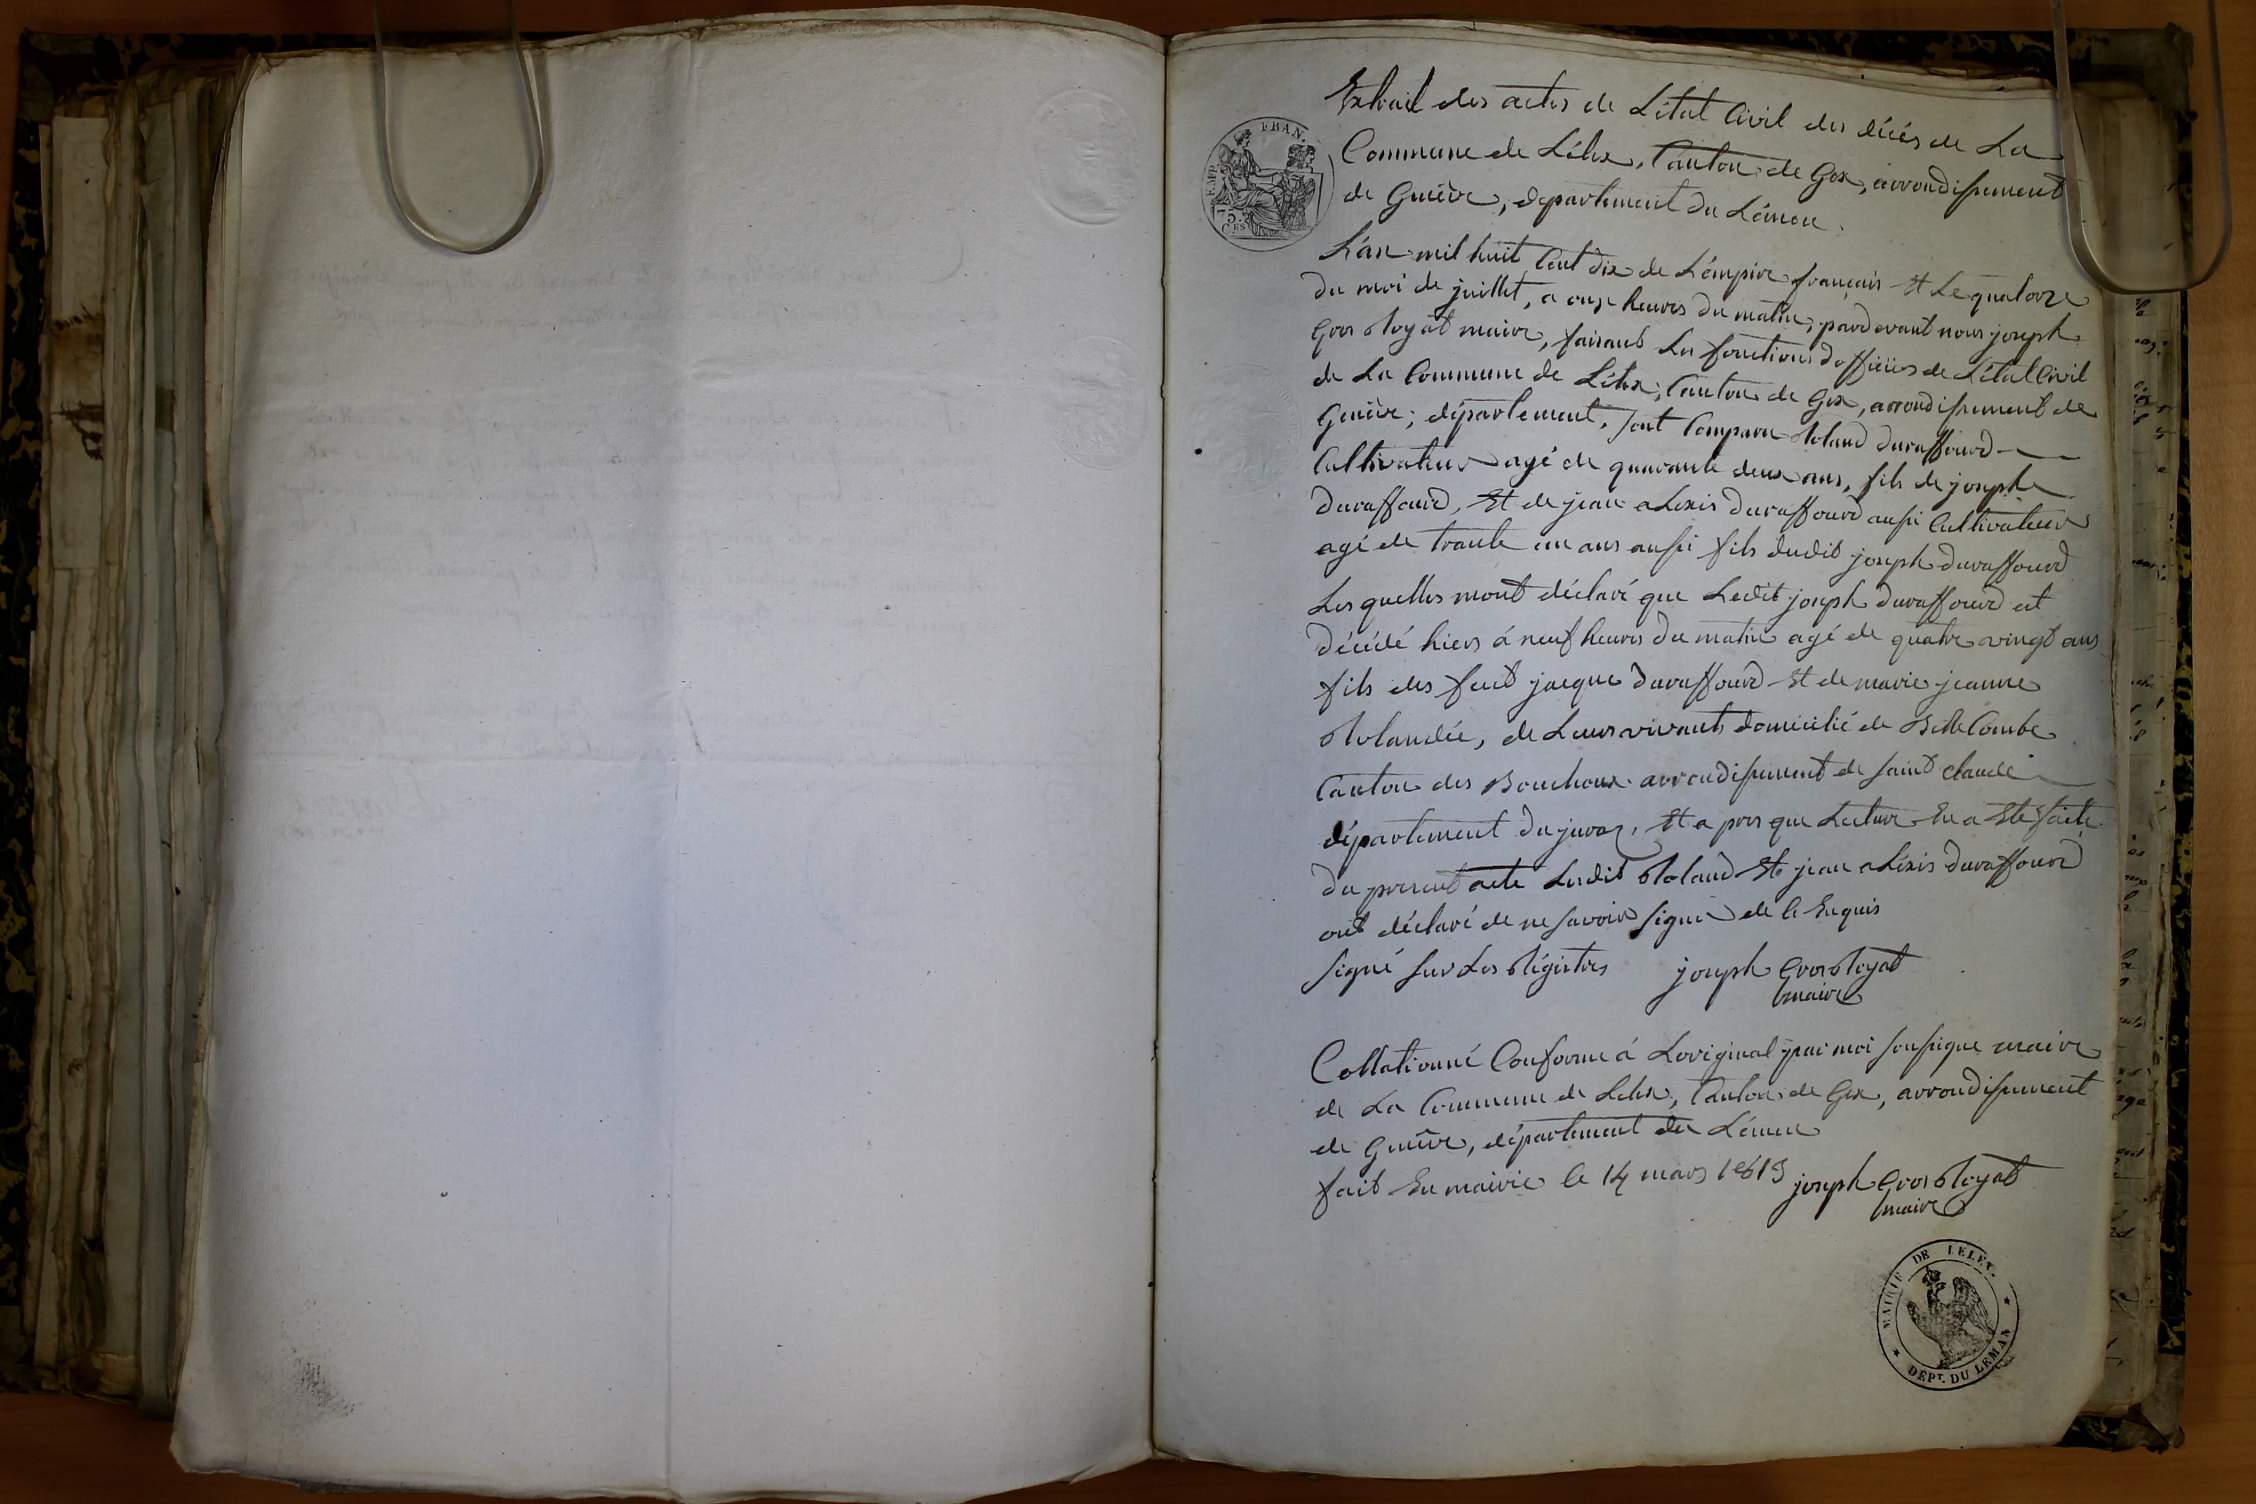 Extrait des actes de L'état Civil des décés de La
Commune de Lélex, Canton de Gex, arrondissement
de Genêve, departement du Léman.
FRAN.
EMP.
75.
CES
L'an mil huit Cent dix de L'émpire français Et Le quatorze
du moi de juillet, a onze heures du matin, pardevant nous joseph
Gros Royat maire, faisant Les fonctions d'officiers de L'état Civil
de La Commune de Lélex, Canton de Gex, arrondissement de
Genêve; département, sont Comparu Roland duraffourd
Cultivateur agé de quarante deux ans, fils de joseph
duraffourd, Et de jean aLexis duraffourd aussi Cultivateur
agé de trante un ans aussi fils dudit joseph duraffourd
Les quelles mont déclaré que Ledit joseph duraffourd est
décédé hiers á neuf heures du matin agé de quatre vingt ans
fils des feut jacque duraffourd Et de marie jeanne
Rolandée, de Leurs vivants domicilié de BelleCombe
Canton des Bouchoux arrondissement de saint claude
département du jura, Et a pres que Lecture En a Eté faite
du present acte Lesdit Roland Et jean aLéxis duraffourd
ont déclaré de ne savoir signé de Ce Enquis
signé sur Les Régistres joseph Gros Royat
maire
Collationné Conforme á Loriginal par moi soussigné maire
de La Commune de Lelex, Canton de Gex, arrondissement
de Genêve, département du Léman
fait En mairie le 14 mars 1813 joseph Gros Royat
maire
MAIRIE DE LELEX.
DÉPT. DU LEMAN